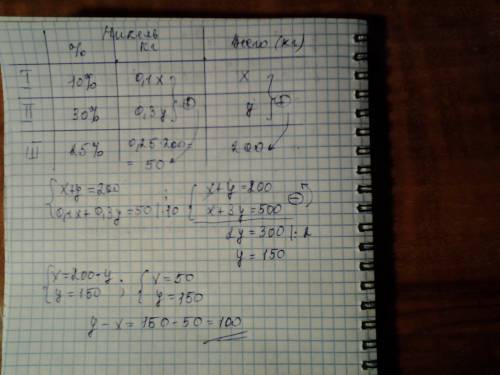 Никель
% кг Всего (кг)
I 10% 0,1x x
II 30% 0,3y ⊕ y ⊕
III 25% 0,25·200= 200
= 50
{ x+y=200 ; { x+y=200
0,1x+0,3y=50 |·10 x+3y=500 ⊖
2y=300 |:2
y=150
{ x=200-y ; { x=50
y=150 y=150
y-x=150-50=100